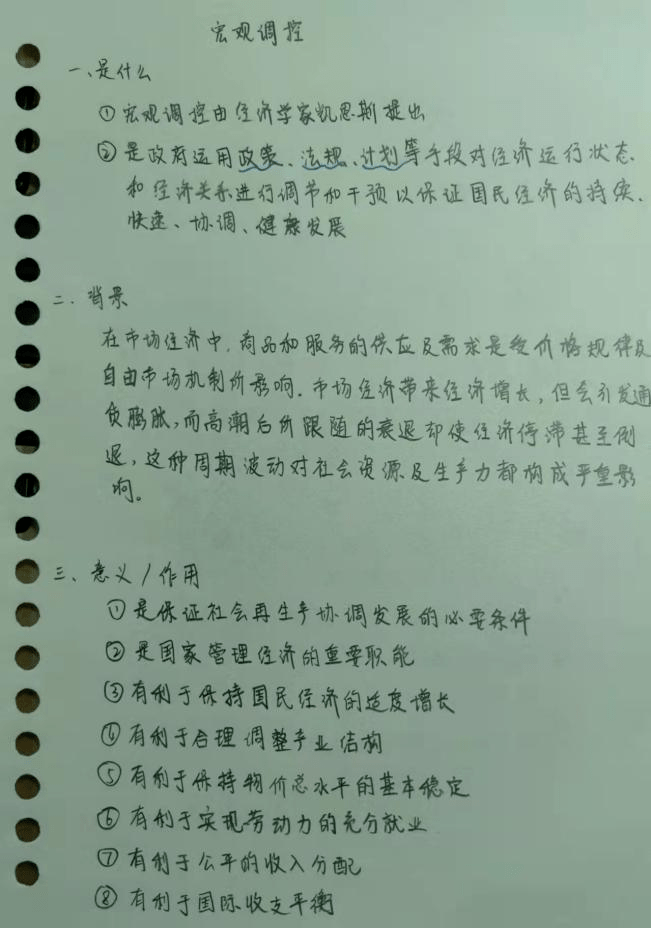 宏观调控
一、是什么
① 宏观调控由经济学家凯恩斯提出
② 是政府运用政策、法规、计划等手段对经济运行状态
和经济关系进行调节和干预以保证国民经济的持续、
快速、协调、健康发展
二、背景
在市场经济中,商品和服务的供应及需求是受价格规律及
自由市场机制所影响.市场经济带来经济增长,但会引发通
货膨胀,而高潮后所跟随的衰退却使经济停滞甚至倒
退,这种周期波动对社会资源及生产力都构成严重影
响。
三、意义/作用
① 是保证社会再生产协调发展的必要条件
② 是国家管理经济的重要职能
③ 有利于保持国民经济的适度增长
④ 有利于合理调整产业结构
⑤ 有利于保持物价总水平的基本稳定
⑥ 有利于实现劳动力的充分就业
⑦ 有利于公平的收入分配
⑧ 有利于国际收支平衡